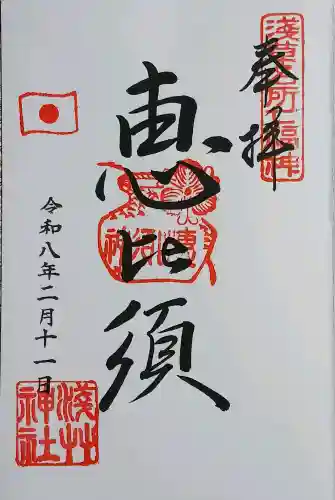 浅草名所七福神
奉拝
恵比須
恵比須神
令和八年二月十一日
浅草神社